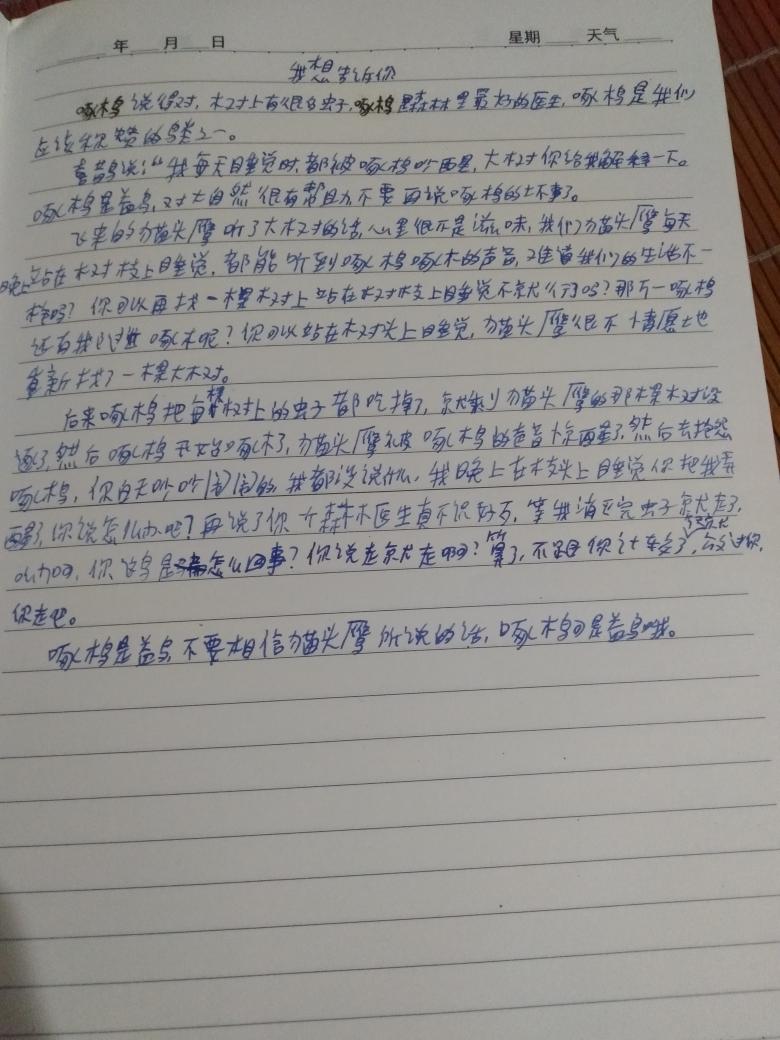 年 月 日 星期 天气
我想告诉你
啄木鸟说得对,木对上有很多虫子,啄木鸟是森林里最好的医生,啄木鸟是我们
应该称赞的鸟类之一。
喜鹊说:“我每天睡觉时,都被啄木鸟吵醒,大树你给我解释一下。
啄木鸟是益鸟,对大自然很有帮助,不要再说啄木鸟的坏事了。
飞来的猫头鹰听了大树的话,心里很不是滋味,我们猫头鹰每天
晚上站在树枝上睡觉,都能听到啄木鸟啄木的声音,难道我们的生活不一
样吗?你可以再找一棵树上站在树枝上睡觉不就行吗?那万一啄木鸟
还有我们进啄木呢?你可以站在树头上睡觉,猫头鹰很不情愿地
重新找了一棵大树。
后来啄木鸟把每棵树上的虫子都吃掉了,就剩猫头鹰的那棵树没
逐了,然后啄木鸟开始啄木了,猫头鹰被啄木鸟的声音惊醒了,然后去抱怨
啄木鸟,你白天吵吵闹闹的,我都没说什么,我晚上在树头上睡觉你把我弄
醒了,你说怎么办吧?再说了你个森林医生真不识好歹,等我消灭完虫子就走了,
你这鸟是怎么回事?你说走就走啊?算了,不跟你计较了,
你走吧。
啄木鸟是益鸟,不要相信猫头鹰所说的话,啄木鸟可是益鸟哦。